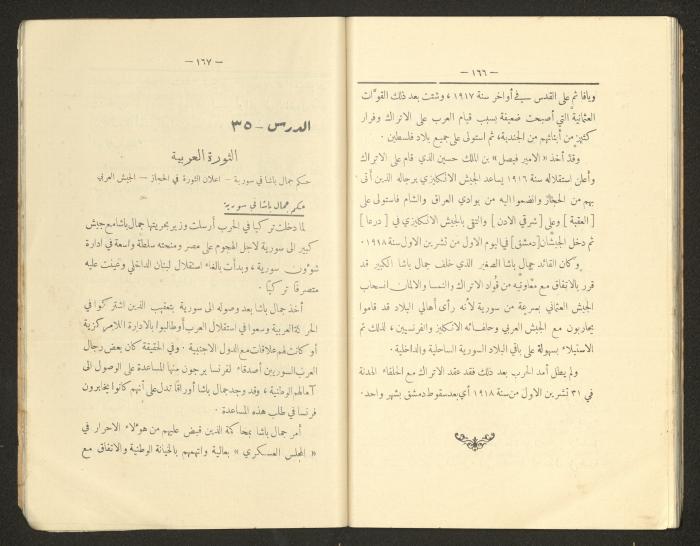 — ١٦٦ —
ويافا ثم على القدس في أواخر سنة ١٩١٧ ، وشتت بعد ذلك القوَّات
العثمانية التي أصبحت ضعيفة بسبب قيام العرب على الاتراك وفرار
كثير من أبنائهم من الجندية، ثم استولى على جميع بلاد فلسطين .
وقد أخذ « الامير فيصل » بن الملك حسين الذي قام على الاتراك
وأعلن استقلاله سنة ١٩١٦ يساعد الجيش الانكليزي برجاله الذين أتى
بهم من الحجاز وانضموا اليه من بوادي العراق والشام فاستولى على
[ العقبة ] وعلى [ شرقي الاردن ] والتقى بالجيش الانكليزي في [ درعا ]
ثم دخل الجيشان [دمشق] في اليوم الاول من تشرين الاول سنة ١٩١٨.
وكان القائد جمال باشا الصغير الذي خلف جمال باشا الكبير قد
قرر بالاتفاق مع معاونيه من قُواد الاتراك والنمسا والالمان انسحاب
الجيش العثماني بسرعة من سورية لأنه رأى أهالي البلاد قد قاموا
يحاربون مع الجيش العربي وحلفائه الانكليز والفرنسيين ، لذلك تم
الاستيلاء بسهولة على باقي البلاد السورية الساحلية والداخلية .
ولم يطل أمد الحرب بعد ذلك فقد عقد الاتراك مع الحلفاء الهدنة
في ٣١ تشرين الاول من سنة ١٩١٨ أي بعد سقوط دمشق بشهر واحد .
— ١٦٧ —
الدرس — ٣٥
الثورة العربية
حكم جمال باشا في سورية — اعلان الثورة في الحجاز — الجيش العربي
حكم جمال باشا في سورية
لما دخلت تركيا في الحرب أرسلت وزير بحريتها جمال باشا مع جيش
كبير الى سورية لاجل الهجوم على مصر ومنحته سلطة واسعة في ادارة
شؤون سورية ، وبدأت بالغاء استقلال لبنان الداخلي وعينت عليه
متصرفًا تركيًا .
أخذ جمال باشا بعد وصوله الى سورية بتعقيب الذين اشتركوا في
الحركة العربية وسعوا في استقلال العرب أو طالبوا بالادارة اللامركزية
أو كانت لهم علاقات مع الدول الاجنبية . وفي الحقيقة كان بعض رجال
العرب السوريين أصدقاء لفرنسا يرجون منها المساعدة على الوصول الى
آمالهم الوطنية ، وقد وجد جمال باشا أوراقًا تدل على أنهم كانوا يخابرون
فرنسا في طلب هذه المساعدة .
أمر جمال باشا بمحاكمة الذين قبض عليهم من هؤلاء الاحرار في
« المجلس العسكري » بعالية واتهمهم بالخيانة الوطنية والاتفاق مع